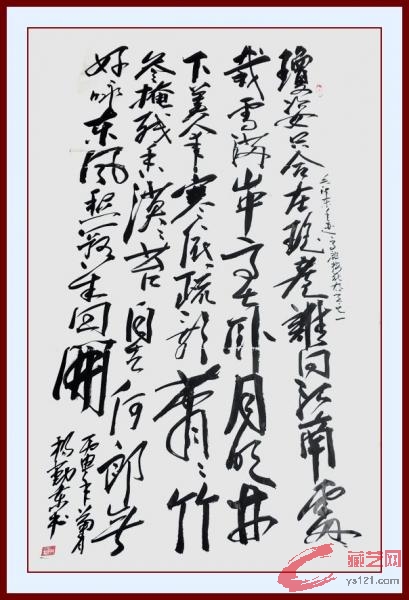 瓊姿只合在瑤臺誰向江南處
栽雪滿山中高士卧月明林
下美人来寒依疏影蕭〻竹
春掩殘香漠〻苔自去何郎無
好咏东风愁寂幾回開
藏艺网
ys121.com